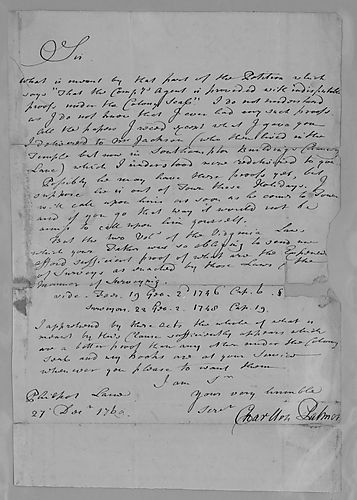 Sir
What is meant by that part of the Petition which
says "That the Comp.ys Agent is provided with indisputable
proofs under the Colony Seal" I do not understand
as I do not know that I ever had any such proofs
All the papers I rec'd except what I gave you
I delivered to Mr Jackson (who then lived in the
Temple but now in Southampton Buildings Chancery
Lane) which I understood were redelivered to you
Possibly he may have these proofs yet, but I
suppose he is out of Town these Holidays. I
will call upon him as soon as he comes to Town
and if you go that way it would not be
amiss to call upon him yourself.
But the two Vol.s of the Virginia Laws
which your Father was so obliging to send me
afford sufficient proof of what are the Expences
of Surveys as enacted by those Laws & the
Manner of Surveying.
vide. Fees. 19 Geo. 2.d 1746 Cap. 6. §
Surveyors. 22 Geo. 2 1748 Cap. 19
I apprehend by these Acts the whole of what is
meant by this Clause sufficiently appears which
are a better proof than any other under the Colony
Seal and my Books are at your Service
whenever you please to want them
I am Sr
Philpot Lane
Your very humble
27 Decr 1769.
Servt
Charlton Palmer